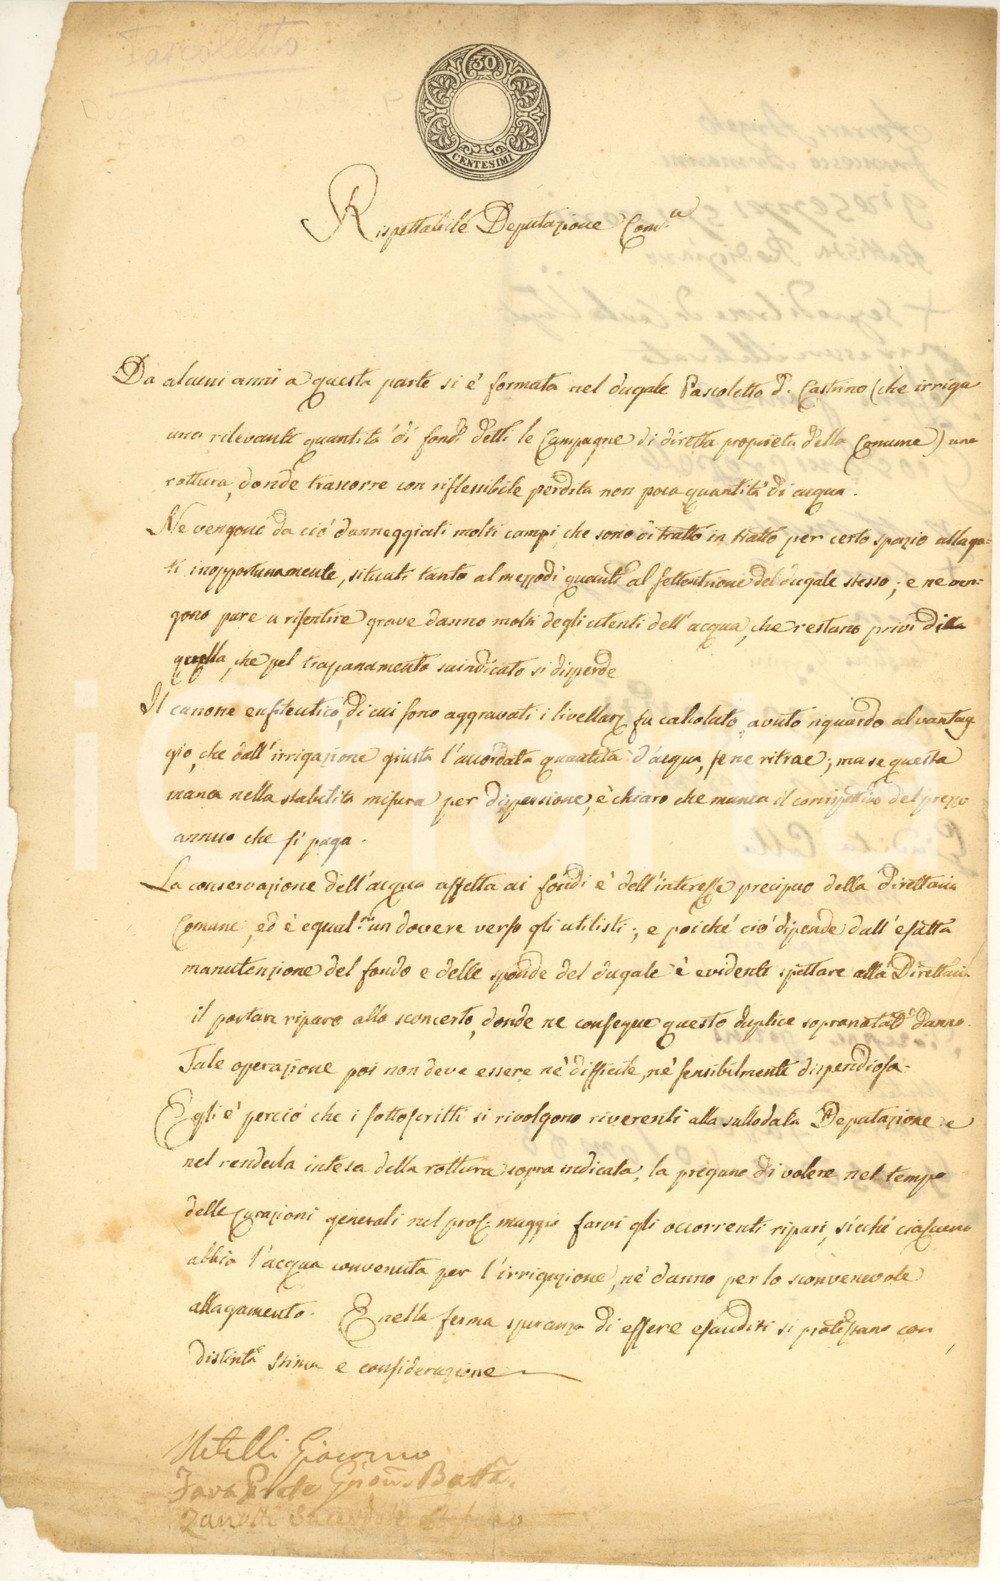 Pascoletto
30
CENTESIMI
Rispettabile Deputazione Com.le
Da alcuni anni a questa parte si è formata nel dugale Pascoletto d. Castrino (che irriga
una rilevante quantità di fondi detti le Campagne di diretta proprietà della Comune) una
rottura, donde trascorre con riflessibile perdita non poca quantità di acqua.
Ne vengono da ciò danneggiati molti campi che sono di tratto in tratto per certo spazio allaga-
ti inopportunamente, situati tanto al mezzodì quanto al settentrione del dugale stesso; e ne ven-
gono pure a risentire grave danno molti degli utenti dell'acqua, che restano privi di
quella, che pel trapanamento suindicato si disperde
Il canone enfiteutico, di cui sono aggravati i livellarj fu calcolato, avuto riguardo al vantag
gio, che dall'irrigazione giusta l'accordata quantità d'acqua, se ne ritrae; ma se questa
manca nella stabilita misura per dispersione, è chiaro che manca il corrispettivo del prezzo
annuo che si paga.
La conservazione dell'acqua affetta ai fondi è dell'interesse precipuo della direttaria
Comune, ed è equal.te un dovere verso gli utilisti; e poichè ciò dipende dall'esatta
manutenzione del fondo e delle sponde del dugale è evidente spettare alla Direttaria
il portare riparo allo sconcerto, donde ne consegue questo duplice sopranotato danno.
Tale operazione poi non deve essere nè difficile, nè sensibilmente dispendiosa.
Egli è perciò che i sottoscritti si rivolgono riverenti alla sullodata Deputazione e
nel renderla intesa della rottura sopra indicata, la pregano di volere nel tempo
delle curazioni generali nel pros. maggio farvi gli occorrenti ripari, sicchè ciascuno
abbia l'acqua convenuta per l'irrigazione, nè danno per lo sconvenevole
allagamento. E nella ferma speranza di essere esauditi si protestano con
distinta stima e considerazione
Mitelli Giacomo
Giovi. Batta.
Sacerdote